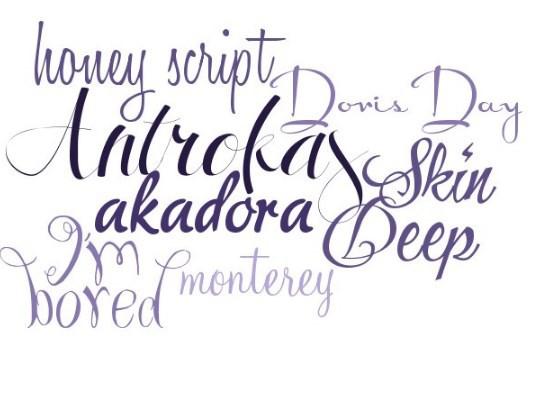 honey script
Doris Day
Antrokas
Skin
Deep
akadora
I'm
bored
monterey